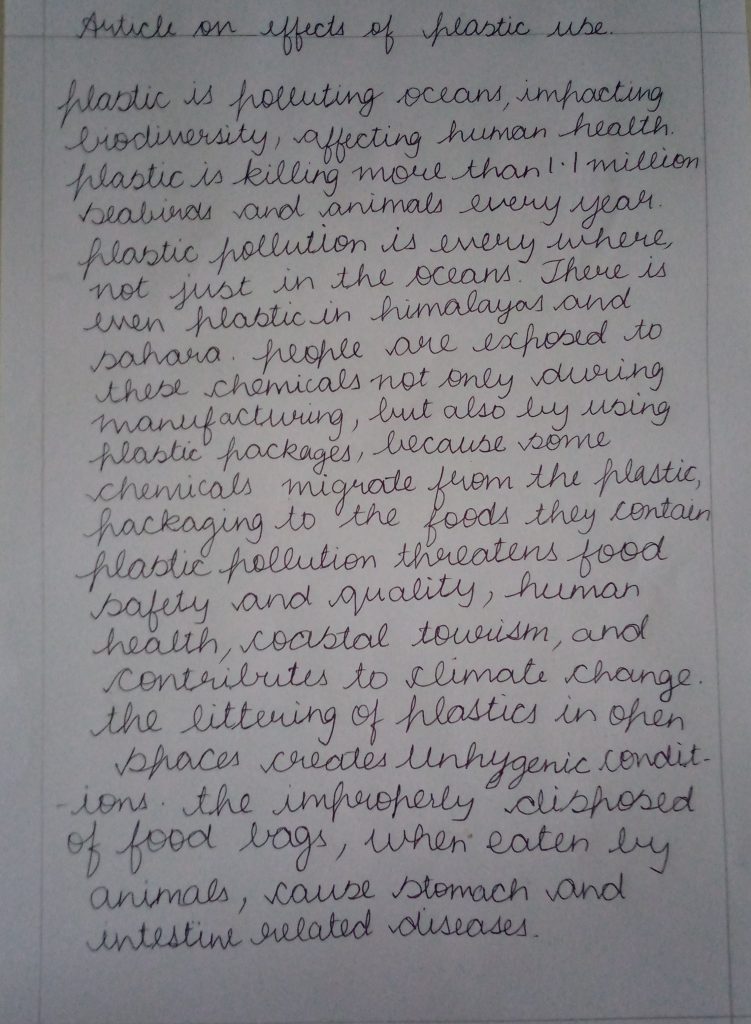 Article on effects of plastic use.
plastic is polluting oceans, impacting
biodiversity, affecting human health.
plastic is killing more than 1.1 million
seabirds and animals every year.
plastic pollution is every where,
not just in the oceans. There is
even plastic in himalayas and
sahara. people are exposed to
these chemicals not only during
manufacturing, but also by using
plastic packages, because some
chemicals migrate from the plastic,
packaging to the foods they contain
plastic pollution threatens food
safety and quality, human
health, coastal tourism, and
contributes to climate change.
the littering of plastics in open
spaces creates Unhygenic condit-
-ions. the improperly disposed
of food bags, when eaten by
animals, cause stomach and
intestine related diseases.